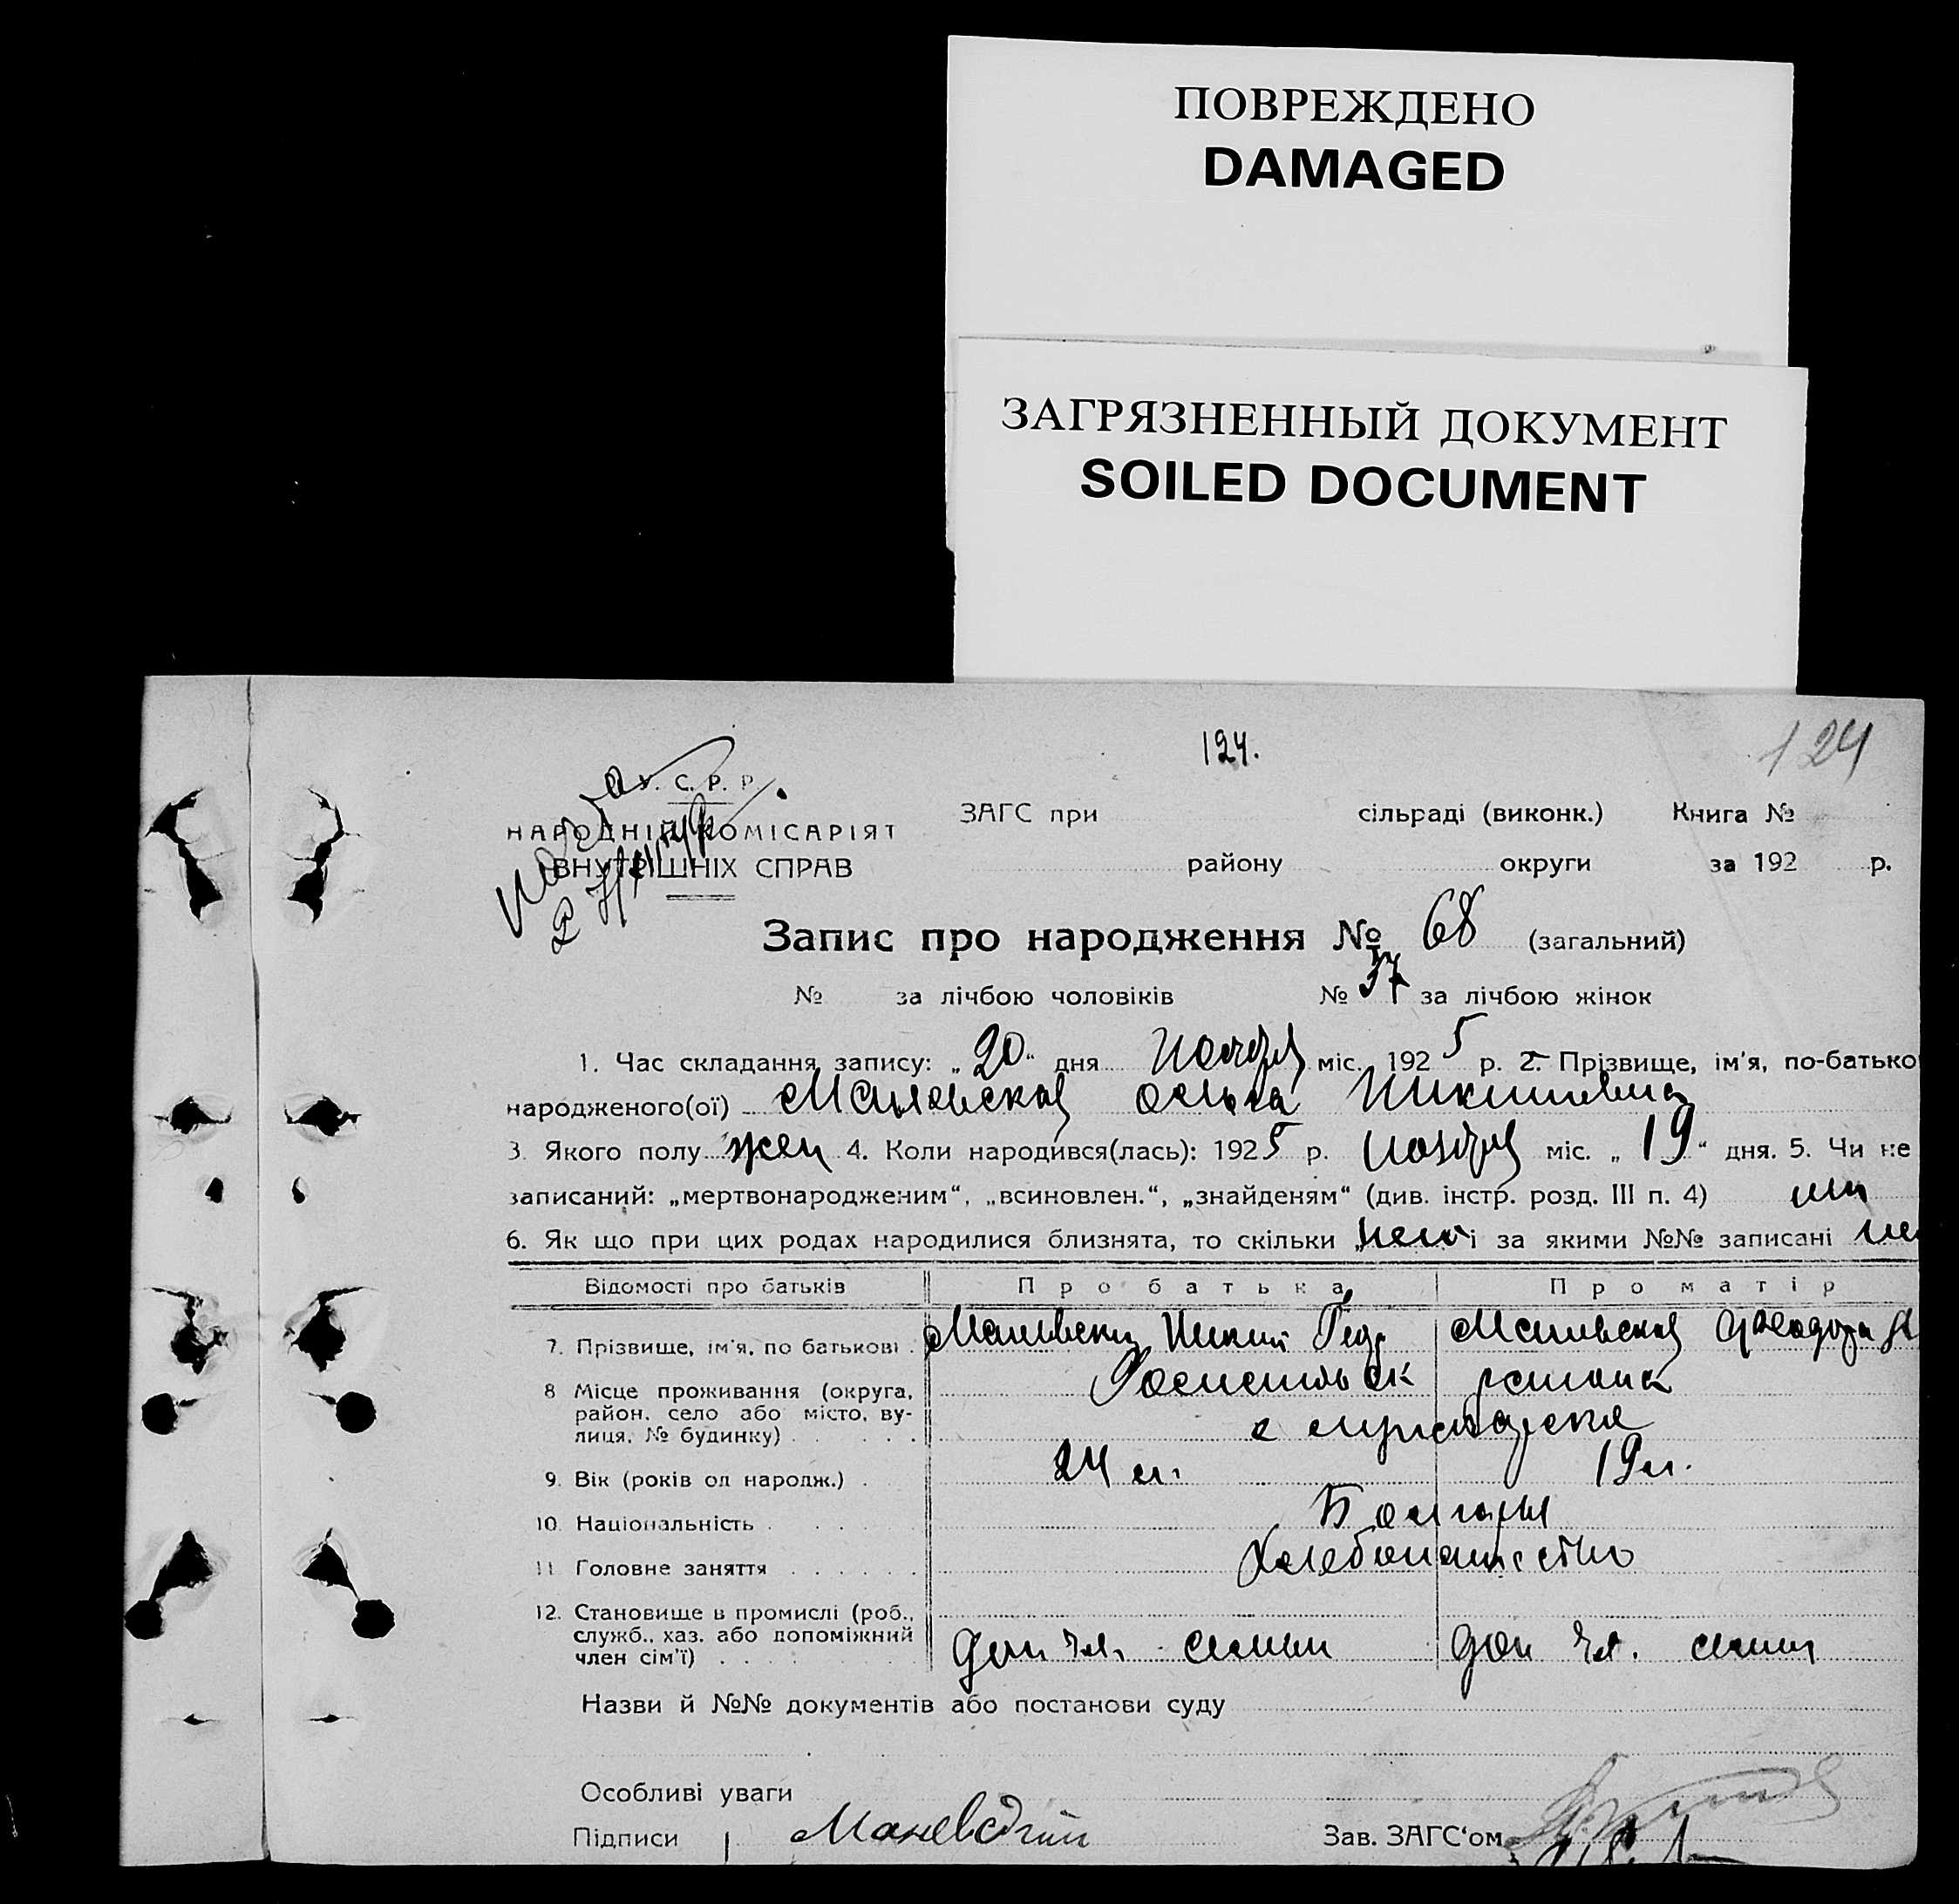 ПОВРЕЖДЕНО
DAMAGED
ЗАГРЯЗНЕННЫЙ ДОКУМЕНТ
SOILED DOCUMENT
124.
124
У. С. Р. Р.
НАРОДНІЙ КОМІСАРІЯТ
ВНУТРІШНІХ СПРАВ
ЗАГС при сільраді (виконк.) Книга №
району округи за 192 р.
Запис про народження № 68 (загальний)
№ за лічбою чоловіків № 37 за лічбою жінок
1. Час складання запису: „20“ дня ноября міс. 1925 р. 2. Прізвище, ім'я, по-батько
народженого(ої)
3. Якого полу жен 4. Коли народився(лась): 1925 р. ноября міс. „19“ дня. 5. Чи не
записаний: „мертвонародженим“, „всиновлен.“, „знайденям“ (див. інстр. розд. III п. 4)
6. Як що при цих родах народилися близнята, то скільки і за якими №№ записані
Відомості про батьків Про батька Про матір
7. Прізвище, ім'я, по батькові
8 Місце проживання (округа,
район, село або місто, ву-
лиця, № будинку)
9. Вік (років од народж.) 24 л. 19 л.
10. Національність Болгары
11 Головне заняття Хлебопашество
12. Становище в промислі (роб.,
служб., хаз. або допоміжний
член сім'ї) доп чл. семьи доп чл. семьи
Назви й №№ документів або постанови суду
Особливі уваги
Підписи Зав. ЗАГС'ом